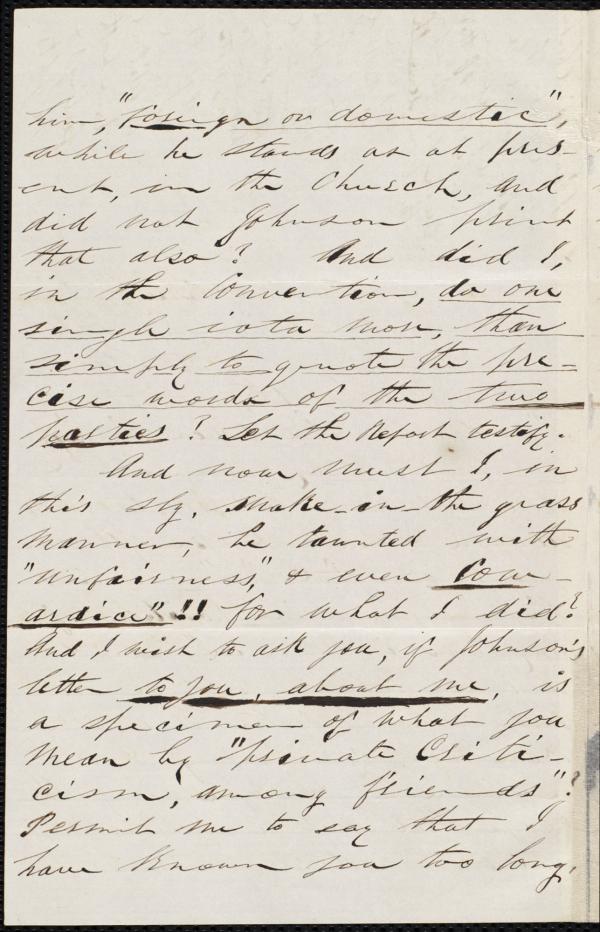 him, "foreign or domestic",
while he stands as at pres-
ent, in the Church, and
did not Johnson print
that also? And did I,
in the Convention, do one
single iota more, than
simply to quote the pre-
cise words of the two
parties? Let the Report testify.
And now must I, in
this sly, snake-in-the grass
manner, be taunted with
"unfairness," & even "Cow-
ardice"!! for what I did?
And I wish to ask you, if Johnson's
letter to you, about me, is
a specimen of what you
mean by "private Criti-
cism, among friends"?
Permit me to say that I
have known you too long,